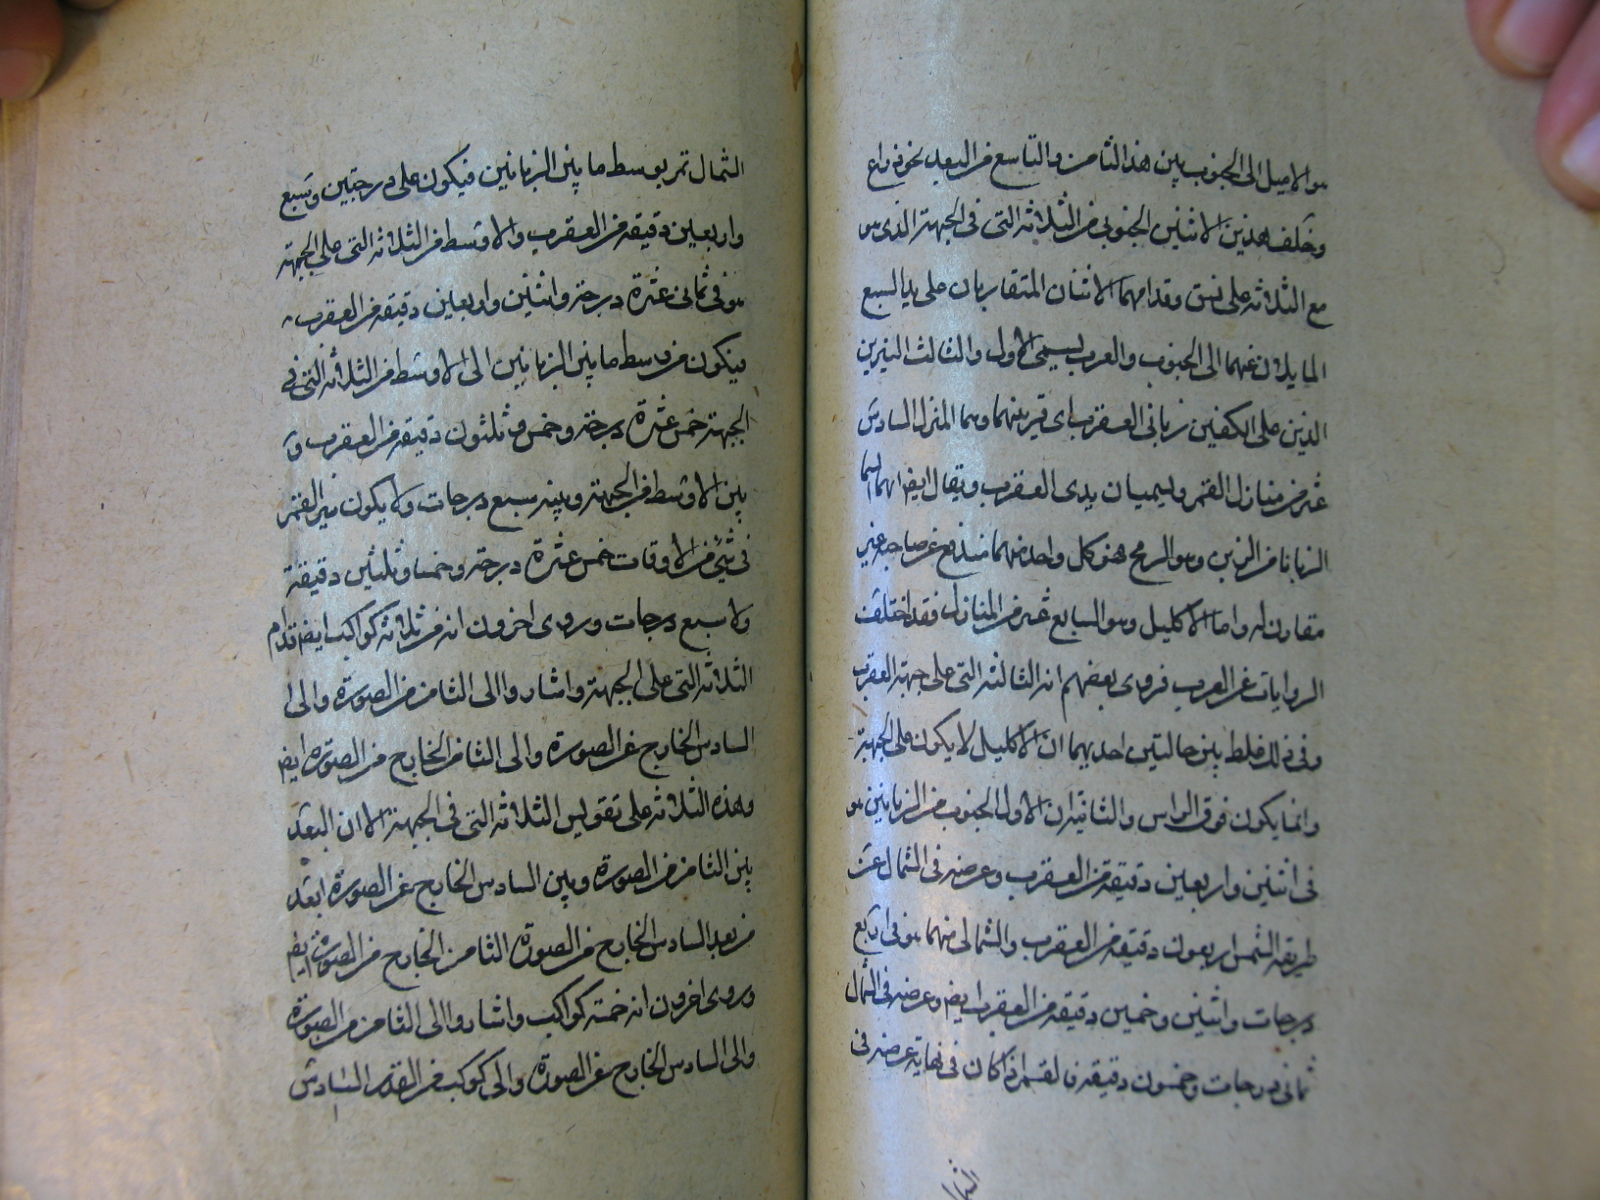 هو الاميل الى الجنوب بين هذا الثامن والتاسع من البعد نحو ذراع
وخلف هذين الاثنين الجنوبى من الثلاثة التى فى الجبهة الذى هو
مع الثلاثة على نسق وقدامهما الاثنان المتقاربان على يد السبع
المايلان عنهما الى الجنوب والعرب يسمى الاول والثالث النيرين
الذين على الكفين زبانى العقرب اى قرينهما وهما المنزل السادس
عشر من منازل القمر ويسميان يدى العقرب ويقال ايضا انهما
الزبانا من الزبن وهو الرمح هو كل واحد منهما مندفع عن صاحبه غير
مقارن له واما الاكليل وهو السابع عشر من المنازل فقد اختلف
الروايات عن العرب فروى بعضهم انه الثالثة التى على جبهة العقرب
وفى ذلك غلط بين حالتين احديهما ان الاكليل لا يكون على الجبهة
وانما يكون فوق الراس والثانية ان الاول الجنوب من الزبانين هو
فى اثنين واربعين دقيقة من العقرب وعرضه فى الشمال عن
طريقة الشمس اربعون دقيقة من العقرب والشمالى منهما هو فى اربع
درجات واثنين وخمسين دقيقة من العقرب ايضا وعرضه فى الشمال
ثمانى درجات وخمسون دقيقة فالقمر اذا كان فى نهاية عرضه فى
الشمال تمر بوسط ما بين الزبانين فيكون على درجتين وسبع
واربعين دقيقة من العقرب والاوسط من الثلاثة التى على الجبهة
هو فى ثمانى عشرة درجة واثنين واربعين دقيقة من العقرب
فيكون من وسط ما بين الزبانين الى الاوسط من الثلاثة التى فى
الجبهة خمس عشرة درجة وخمس وثلثون دقيقة من العقرب و
بين الاوسط من الجبهة وبينه سبع درجات ولا يكون سير القمر
فى شئ من الاوقات خمس عشرة درجة وخمسا وثلثين دقيقة
ولا سبع درجات وروى اخرون انه من ثلاثة كواكب ايضا قدام
الثلاثة التى على الجبهة واشاروا الى الثامن من الصورة والى
السادس الخارج عن الصورة والى الثامن الخارج من الصورة ايضا
وهذه الثلاثة على تقويس الثلاثة التى فى الجبهة الا ان البعد
بين الثامن من الصورة وبين السادس الخارج عن الصورة ابعد
من بعد السادس الخارج من الصورة الثامن الخارج من الصورة ايضا
وروى اخرون انه خمسة كواكب واشاروا الى الثامن من الصورة
والى السادس الخارج عن الصورة والى كوكب من القدر السادس